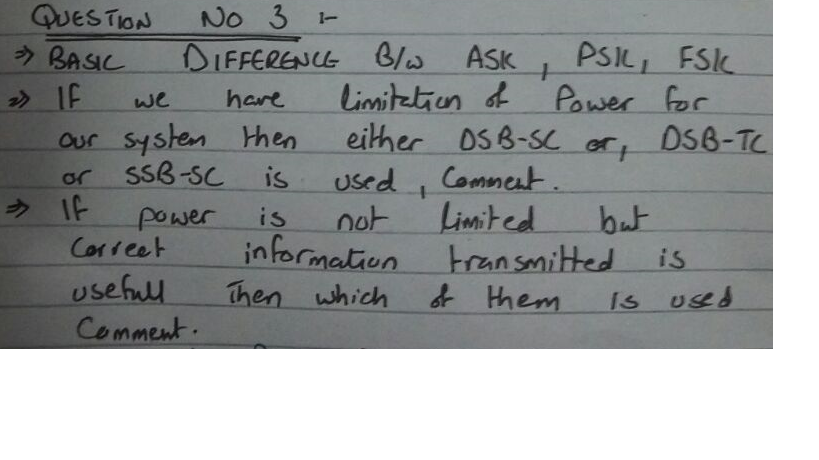 QUESTION NO 3 :-
⇒ BASIC DIFFERENCE B/w ASK , PSK, FSK
⇒ IF we have limitation of Power for
our system then either DSB-SC or, DSB-TC
or SSB-SC is used , Comment.
⇒ If power is not limited but
Correct information transmitted is
usefull Then which of them is used
Comment.